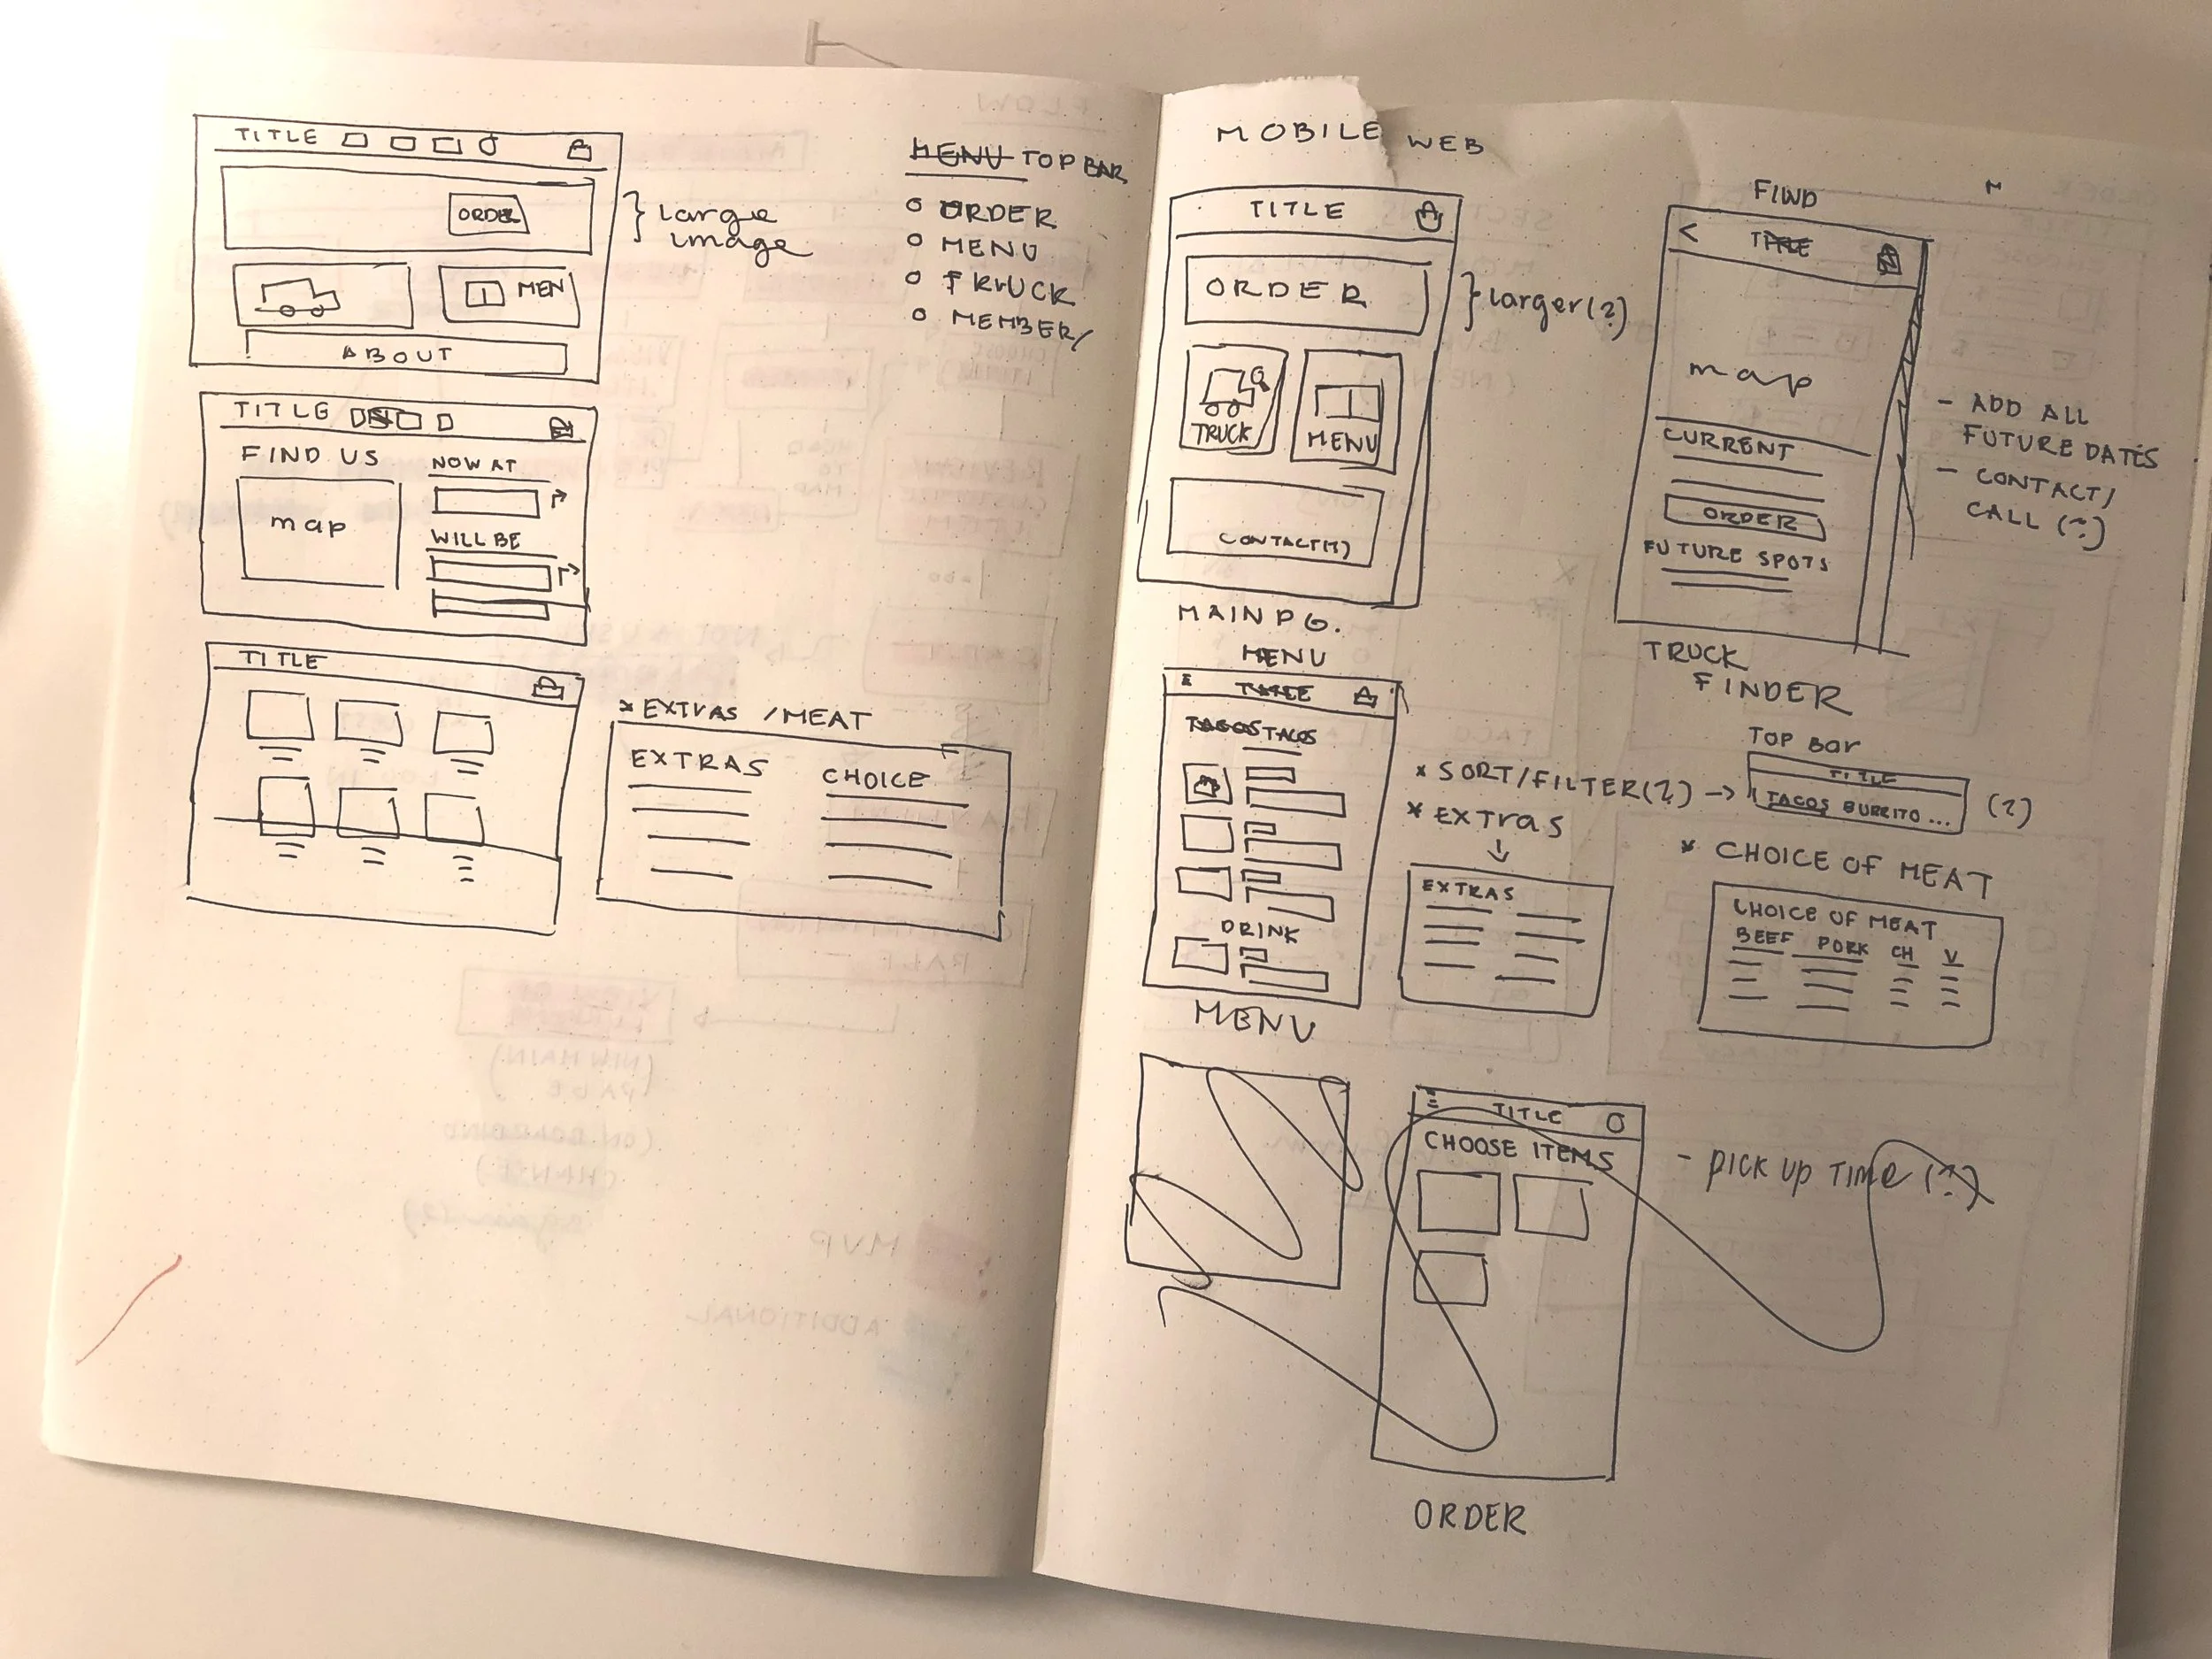 TITLE
ORDER
large
image
MEN
ABOUT
MENU TOP BAR
ORDER
MENU
TRUCK
MEMBER/
TITLE
FIND US
map
NOW AT
WILL BE
TITLE
* EXTRAS / MEAT
EXTRAS
CHOICE
MOBILE WEB
TITLE
ORDER
larger (?)
TRUCK
MENU
CONTACT(?)
MAIN PG.
FIND
TITLE
map
CURRENT
ORDER
FUTURE SPOTS
- ADD ALL
FUTURE DATES
- CONTACT/
CALL (?)
TRUCK
FINDER
MENU
TITLE
TACOS TACOS
DRINK
MENU
* SORT/FILTER(?) →
* EXTRAS
↓
EXTRAS
TOP BAR
TITLE
TACOS BURRITO ...
(?)
* CHOICE OF MEAT
CHOICE OF MEAT
BEEF PORK CH V
TITLE
CHOOSE ITEMS
- PICK UP TIME (?)
ORDER